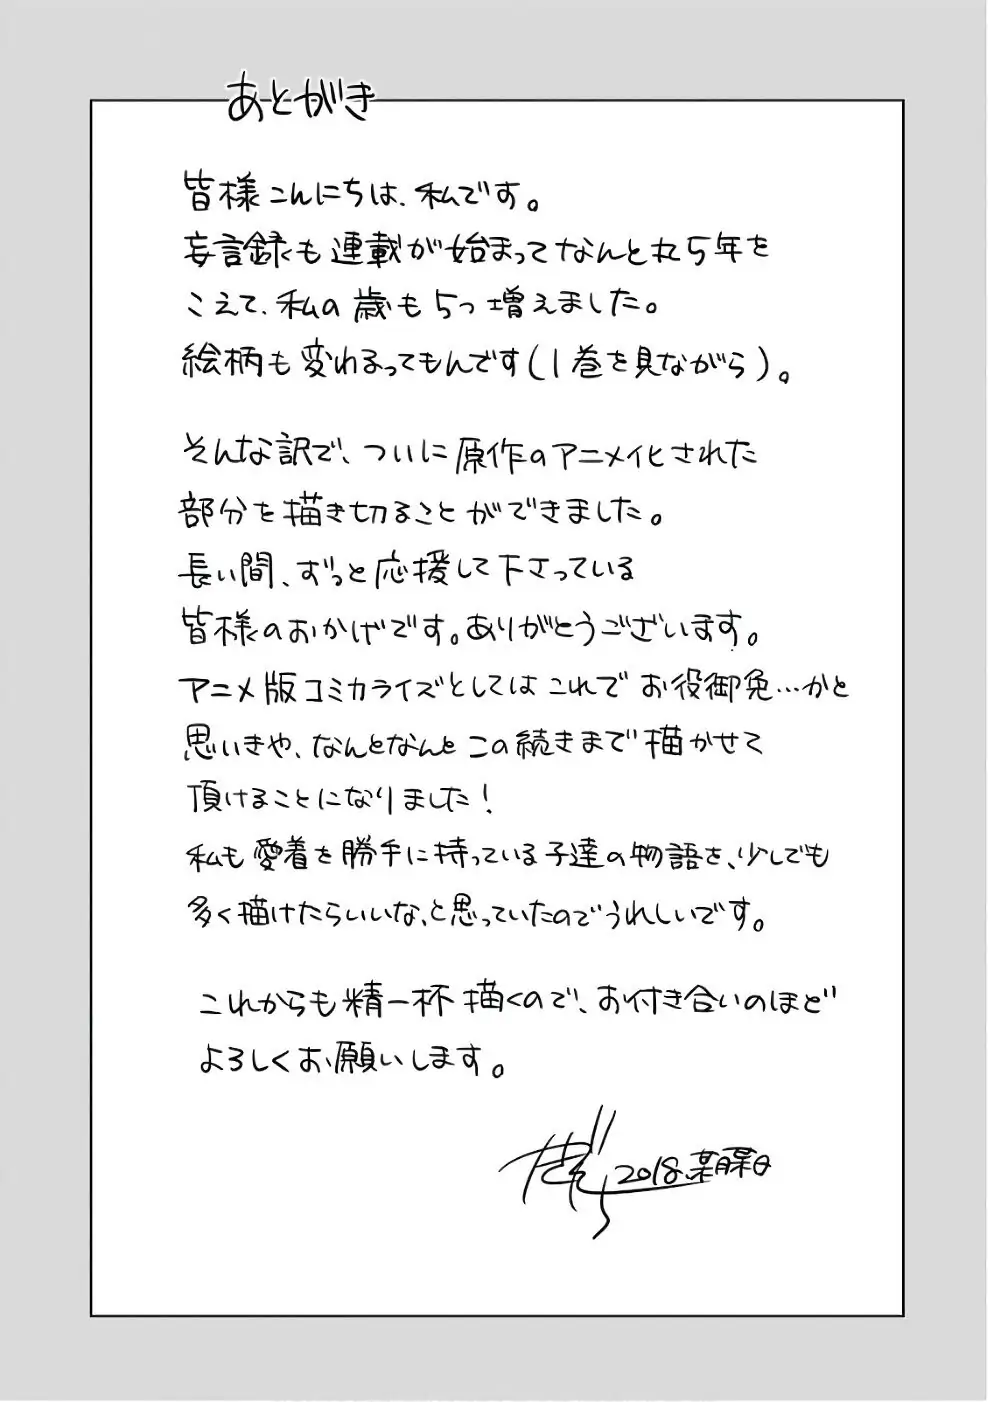 あとがき
皆様こんにちは、私です。
妄言録も連載が始まってなんと丸5年を
こえて、私の歳も5つ増えました。
絵柄も変わるってもんです(1巻を見ながら)。
そんな訳で、ついに原作のアニメ化された
部分を描き切ることができました。
長い間、ずっと応援して下さっている
皆様のおかげです。ありがとうございます。
アニメ版コミカライズとしてはこれでお役御免…かと
思いきや、なんとなんとこの続きまで描かせて
頂けることになりました!
私も愛着を勝手に持っている子達の物語を、少しでも
多く描けたらいいな、と思っていたのでうれしいです。
これからも精一杯描くので、お付き合いのほど
よろしくお願いします。
2018.某月某日